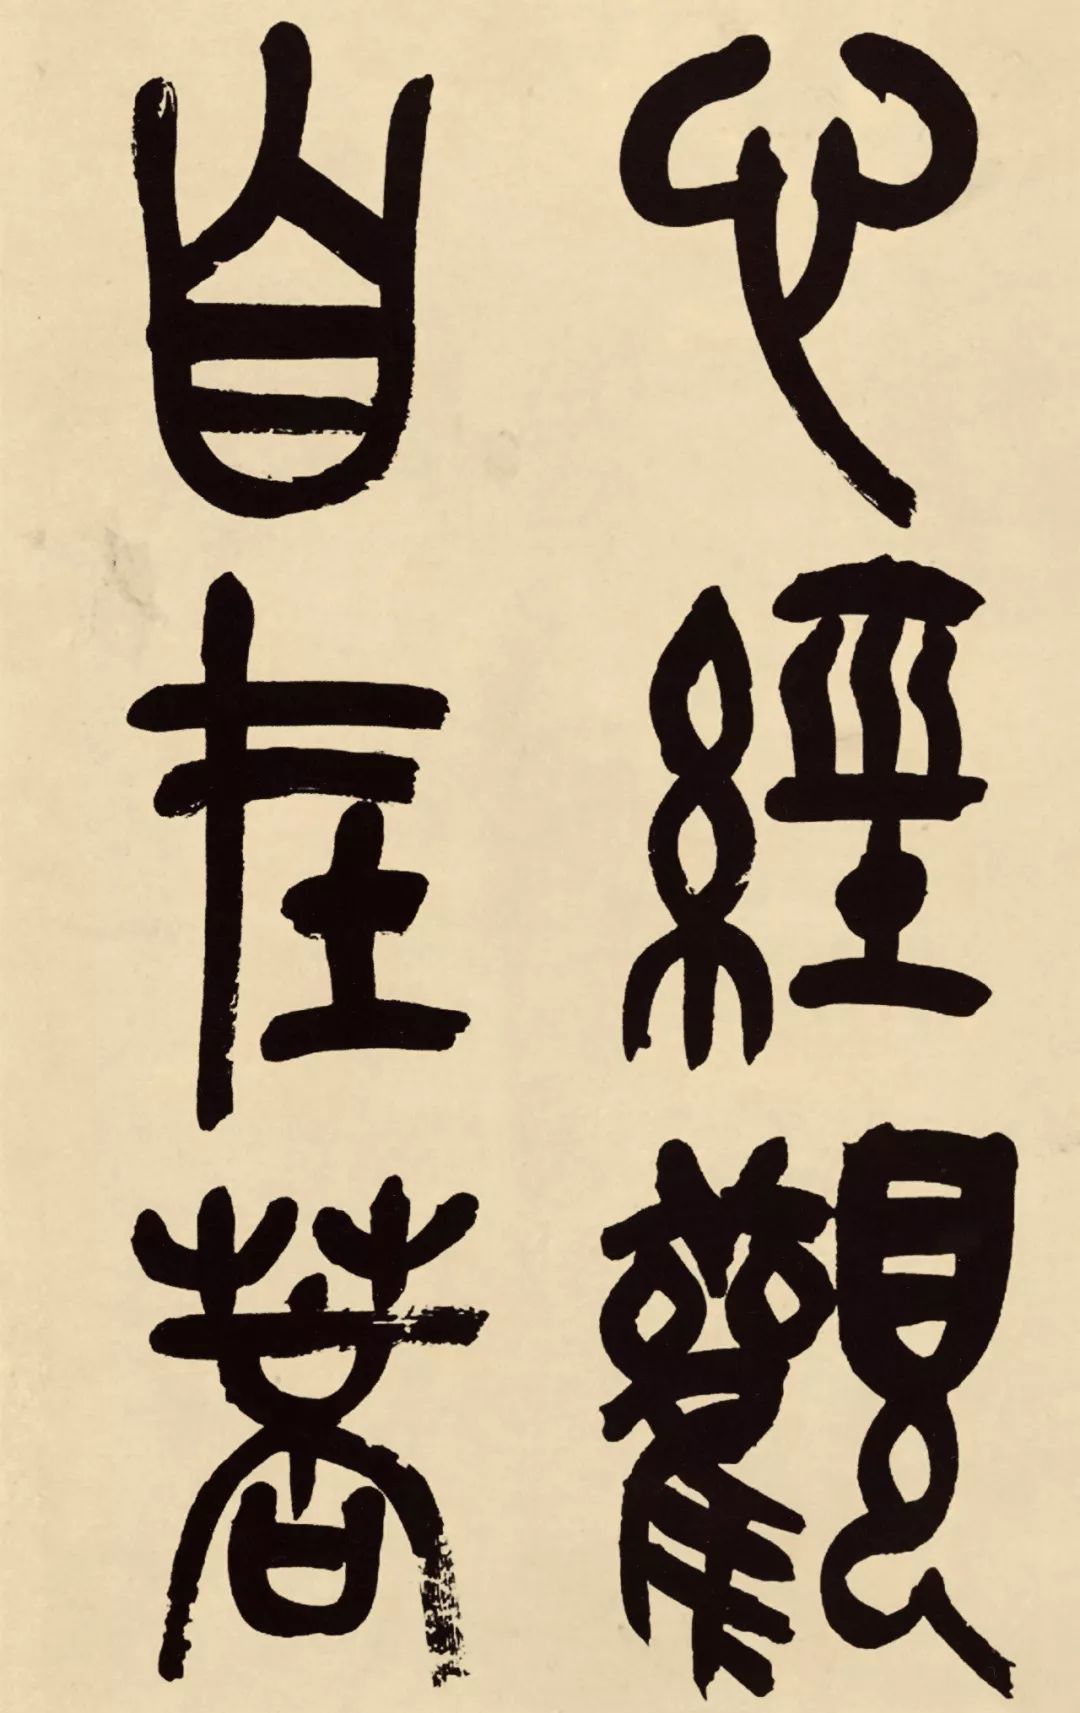 心經觀
自在菩